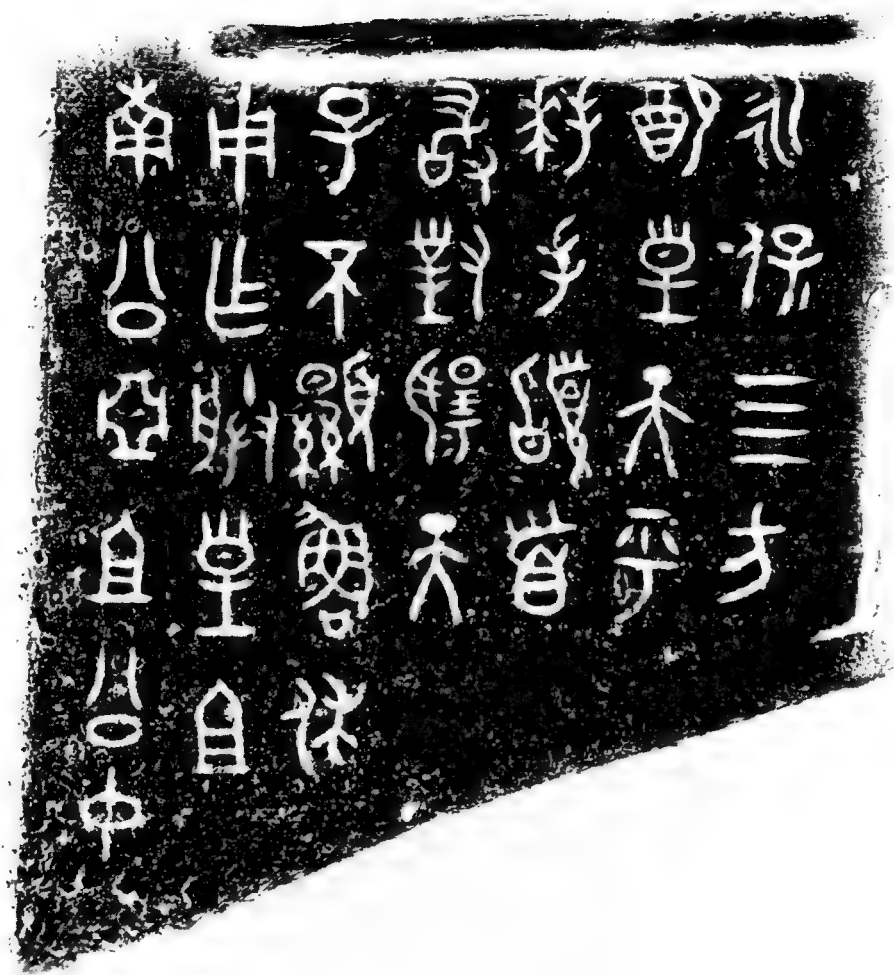 永保四方
配皇天乎
拜手稽首
敢對揚天
子不顯魯休
用乍朕皇且
南公亞且公中